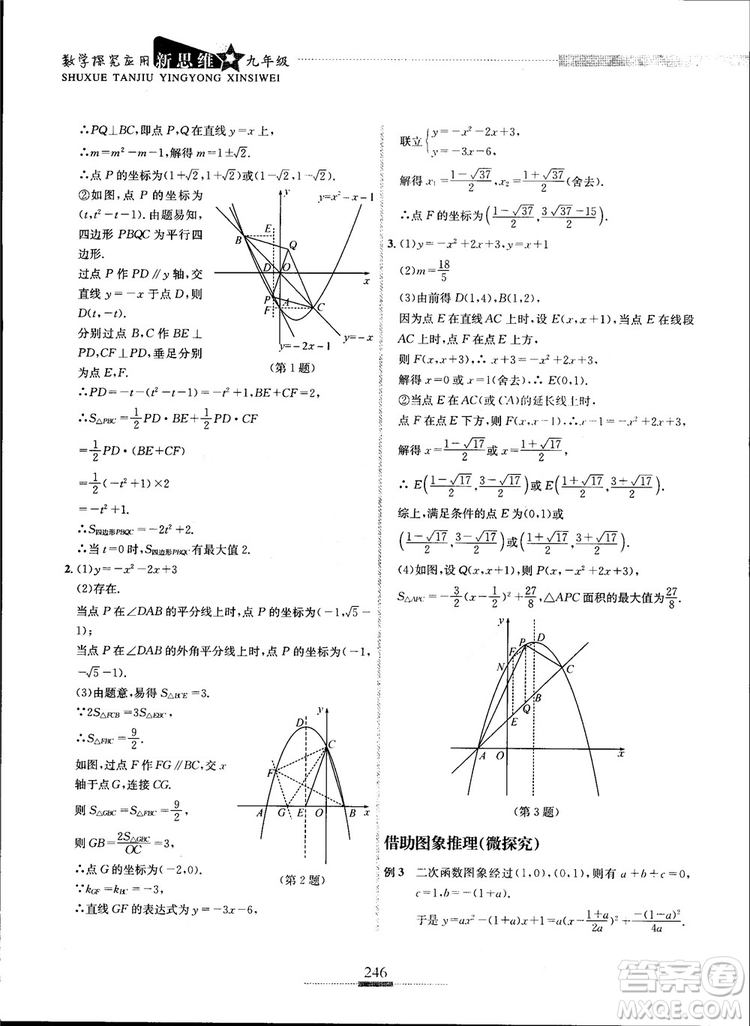 数学探究应用 新思维 九年级
SHUXUE TANJIU YINGYONG XINSIWEI
∴PQ⊥BC,即点 P,Q在直线 y=x 上,
∴m=m²-m-1,解得 m=1±√2.
∴点 P 的坐标为(1+√2,1+√2)或(1-√2,1-√2).
②如图,点 P 的坐标为
(t,t²-t-1).由题易知,
四边形 PBQC 为平行四
边形.
过点 P 作 PD∥y 轴,交
直线 y=-x 于点 D,则
D(t,-t).
分别过点 B,C 作 BE⊥
PD,CF⊥PD,垂足分别
为点 E,F.
y
y=x²-x-1
E
B
Q
D
O
x
P
A
F
C
y=-2x-1
(第 1 题)
∴PD=-t-(t²-t-1)=-t²+1,
∴S△PBC=1/2 PD·BE+1/2 PD·CF
=1/2 PD·(BE+CF)
=1/2(-t²+1)×2
=-t²+1.
∴S四边形PBQC=-2t²+2.
∴当 t=0时,S四边形PBQC有最大值2.
2. (1)y=-x²-2x+3
(2)存在.
当点 P 在∠DAB的平分线上时,点 P 的坐标为(-1,√5-
1);
当点 P 在∠DAB 的外角平分线上时,点 P 的坐标为(-1,
-√5-1).
(3)由题意,易得 S△BCE=3.
∵2S△FCB=3S△EBC,
∴S△FCB=9/2.
如图,过点 F 作 FG∥BC,交 x
轴于点 G,连接 CG.
则 S△GBC=S△FBC=9/2,
则 GB=2S△GBC/OC=3.
∴点 G 的坐标为(-2,0).
∵kGF=kBC=-3,
∴直线 GF 的表达式为 y=-3x-6,
y
D
C
F
A
G
E
O
B
x
(第 2 题)
联立{y=-x²-2x+3,
y=-3x-6,
解得 x₁=(1-√37)/2,x₂=(1+√37)/2(舍去).
∴点 F 的坐标为((1-√37)/2,(3√37-15)/2).
3. (1)y=-x²+2x+3,y=x+1
(2)m=18/5
(3)由前得 D(1,4),B(1,2).
因为点 E 在直线 AC 上时,设 E(x,x+1),当点 E 在线段
AC上时,点 F 在点 E 上方,
则 F(x,x+3).∴x=0或x=1(舍去).∴E(0,1).
②当点 E 在线段 AC(或 CA)的延长线上时,
点 F 在点 E 下方,则 F(x,x-1).∴x-1=-x²+2x+3,
解得 x=(1-√17)/2或x=(1+√17)/2.
∴E((1-√17)/2,(3-√17)/2)或E((1+√17)/2,(3+√17)/2).
综上,满足条件的点 E 为(0,1)或
((1-√17)/2,(3-√17)/2)或((1+√17)/2,(3+√17)/2).
(4)如图,设 Q(x,x+1),则 P(x,-x²+2x+3),
S△APC=-3/2(x-1/2)²+27/8,△APC 面积的最大值为27/8.
y
P
D
F
N
C
B
Q
E
A
O
x
(第 3 题)
借助图象推理(微探究)
例 3 二次函数图象经过(1,0),(0,1),则有 a+b+c=0,
c=1,b=-a-1.
于是 y=ax²+bx+c=a(x-(1+a)/2a)²+1-(1+a)²/4a.
246
答案圈
MXQE.COM